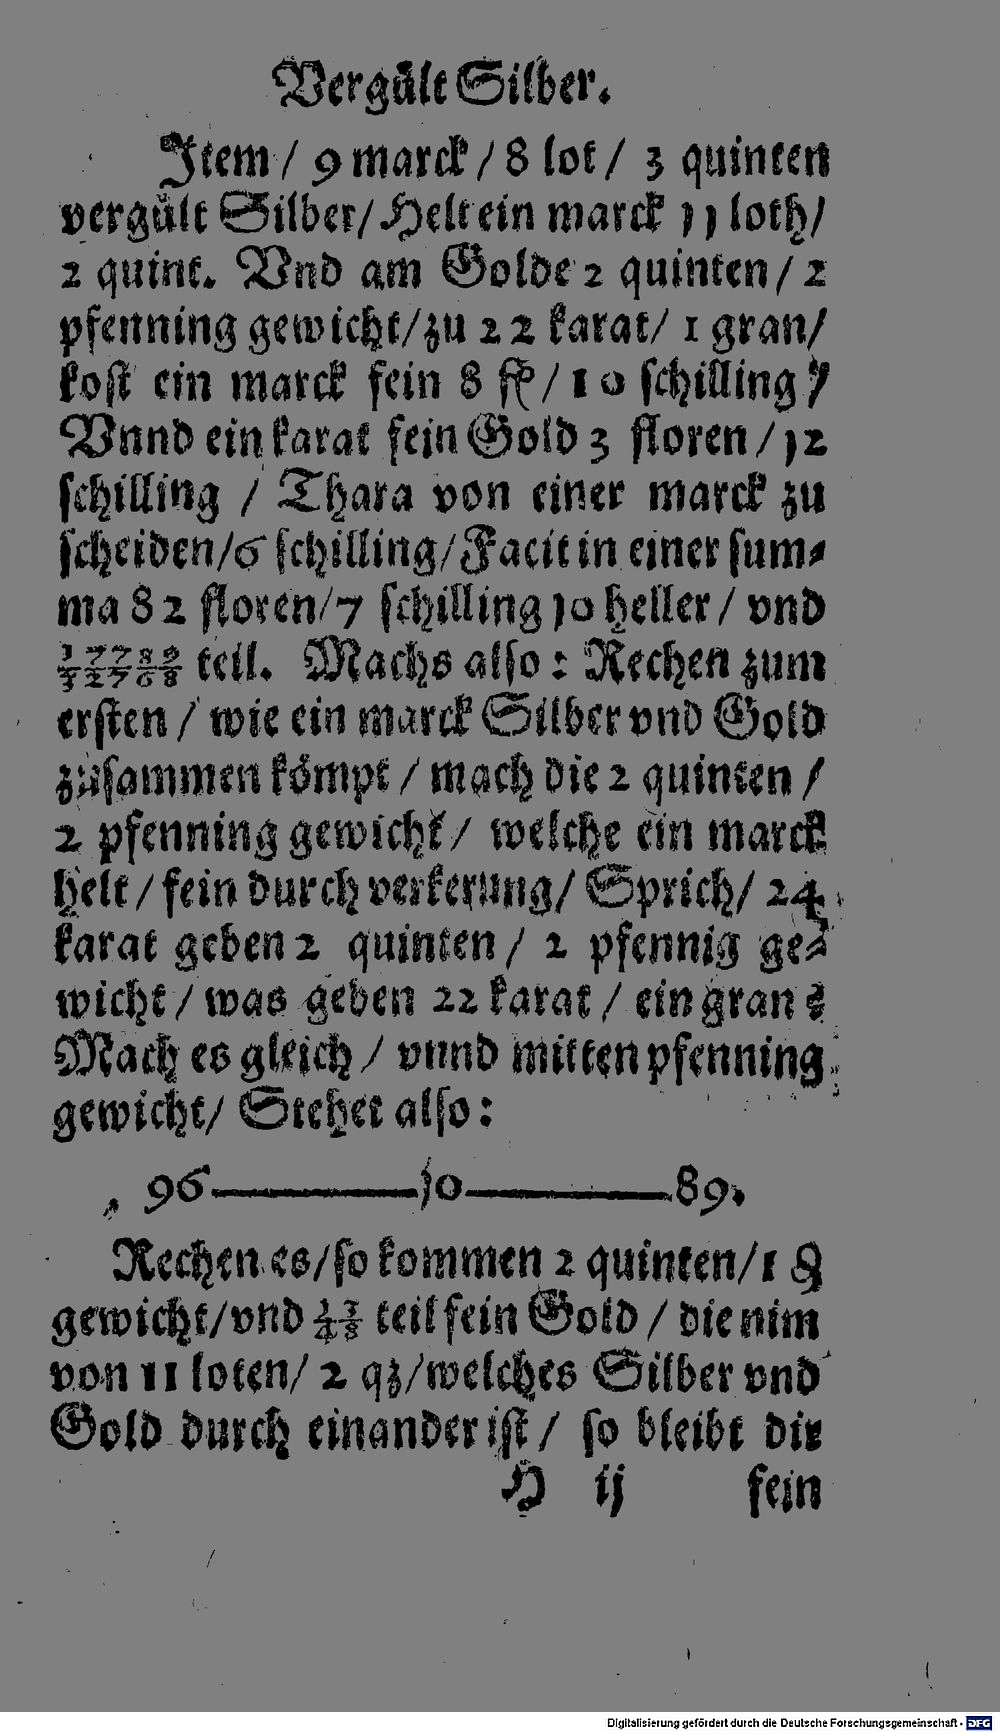 Vergült Silber.
Item / 9 marck / 8 lot / 3 quinten
vergült Silber / Helt ein marck 11 loth /
2 quint. Vnd am Golde 2 quinten / 2
pfenning gewicht / zu 22 karat / 1 gran /
kost ein marck fein 8 fl / 10 schilling /
Vnnd ein karat fein Gold 3 floren / 12
schilling / Thara von einer marck zu
scheiden / 6 schilling / Facit in einer sum⸗
ma 82 floren / 7 schilling 10 heller / vnd
teil. Machs also : Rechen zum
ersten / wie ein marck Silber vnd Gold
zusammen kömpt / mach die 2 quinten /
2 pfenning gewicht / welche ein marck
helt / fein durch verkerung / Sprich / 24
karat geben 2 quinten / 2 pfennig ge⸗
wicht / was geben 22 karat / ein gran ?
Mach es gleich / vnnd mitten pfenning
gewicht / Stehet also :
96 ——— 10 ——— 89.
Rechen es / so kommen 2 quinten / 1 ₰
gewicht / vnd 13/48 teil fein Gold / die nim
von 11 loten / 2 qz / welches Silber vnd
Gold durch einander ist / so bleibt dir
H ij fein
Digitalisierung gefördert durch die Deutsche Forschungsgemeinschaft - DFG